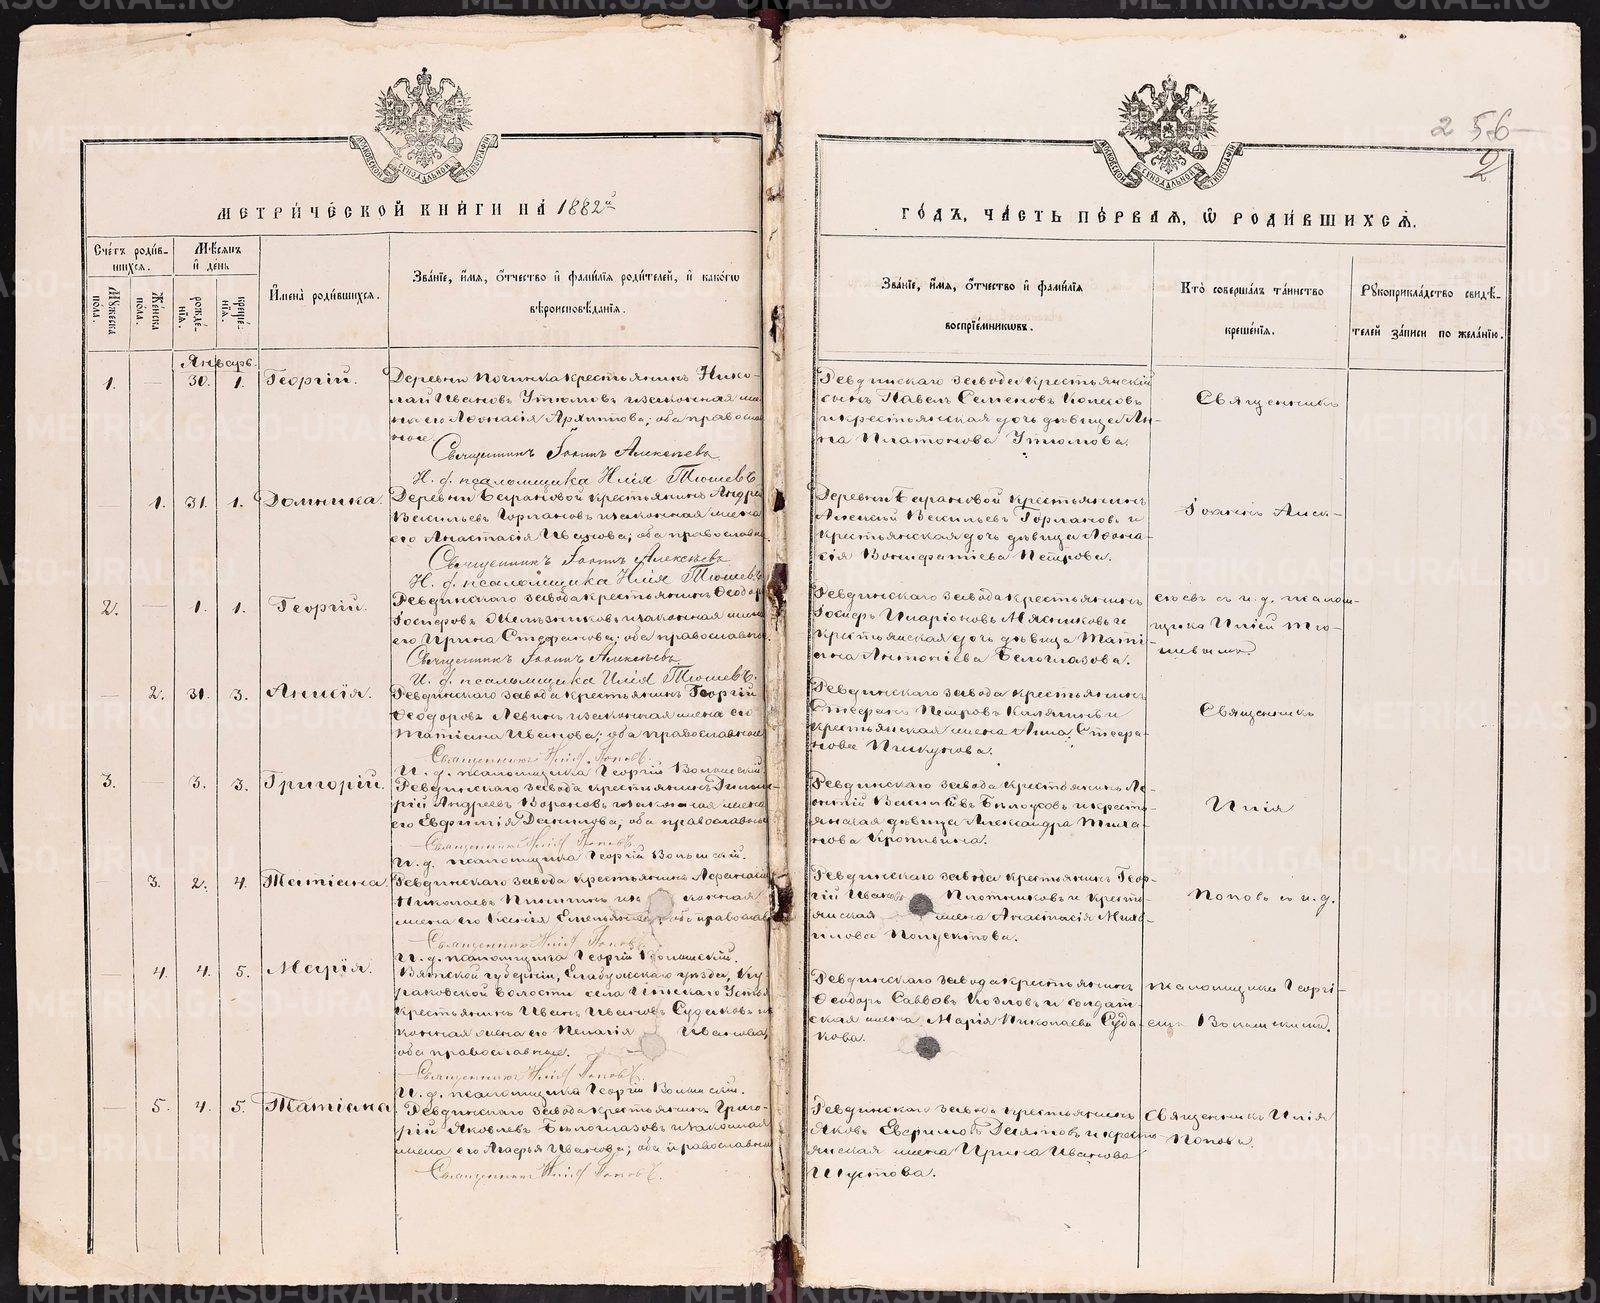 256
2
МЕТРИ́ЧЕСКОЙ КНИ́ГИ НА́ 1882й
ГО́ДЪ, ЧА́СТЬ ПЕ́РВАѦ, Ѡ҆ РОДИ́ВШИХСѦ.
Сче́тъ роди́в-
шихся.
Мѣ́сяцъ
и҆ де́нь
Му́жеска
по́ла.
Же́нска
по́ла.
рожде́-
нїѧ.
креще́-
нїѧ.
И҆мена̀ роди́вшихся.
Зва́нїе, и҆́мя, ѻ҆́тчество и҆ фами́лїя роди́телей, и҆ како́гѡ
вѣроисповѣ́данїя.
Зва́нїе, и҆́мя, ѻ҆́тчество и҆ фами́лїя
воспрїе́мникѡвъ.
Кто̀ соверша́лъ та́инство
креще́нїя.
Рꙋкоприкла́дство свидѣ́-
телей за́писи по жела́нїю.
Январь.
1. — 30. 1. Георгій.
Деревни Починка крестьянинъ Нико-
лай Ивановъ Утюмовъ и законная же-
на его Афонасія Архипова; оба православ-
ные.
Священникъ Іоаннъ Алексѣевъ
И. д. псаломщика Илія Тюшевъ.
Ревдинскаго завода крестьянскій
сынъ Павелъ Семеновъ
и крестьянская дочь дѣвица Ан-
на Платонова Утюмова.
Священникъ
— 1. 31. 1. Домника.
Деревни Барановой крестьянинъ Андрей
Васильевъ Горлановъ и законная жена
его Анастасія Иванова; оба православные
Священникъ Іоаннъ Алексѣевъ
И. д. псаломщика Илія Тюшевъ.
Деревни Барановой крестьянинъ
Алексѣй Васильевъ Горлановъ и
крестьянская дочь дѣвица Афона-
сія Вонифатіева Петрова.
Іоаннъ Алек-
2. — 1. 1. Георгій.
Ревдинскаго завода крестьянинъ Ѳеодоръ
Іосифовъ Желѣзниковъ и законная жена
его Ирина Стефанова; оба православные
Священникъ Іоаннъ Алексѣевъ
И. д. псаломщика Илія Тюшевъ.
Ревдинскаго завода крестьянинъ
Іосифъ Иларіоновъ Мясниковъ и
крестьянская дочь дѣвица Таті-
ана Антоніева Белоглазова.
сѣевъ съ и. д. псалом-
щика Иліей Тю-
шевымъ.
— 2. 31. 3. Анисія.
Ревдинскаго завода крестьянинъ Георгій
Ѳеодоровъ Левинъ и законная жена его
Татіана Иванова; оба православные
Священникъ Илія Поповъ.
И. д. псаломщика Георгій Волынскій.
Ревдинскаго завода крестьянинъ
Стефанъ Петровъ Калягинъ и
крестьянская жена Анна Стефа-
нова Пискунова.
Священникъ
3. — 3. 3. Григорій.
Ревдинскаго завода крестьянинъ Григо-
рій Андреевъ Вороновъ и законная жена
его Евфимія Данилова; оба православные
Священникъ Илія Поповъ.
И. д. псаломщика Георгій Волынскій.
Ревдинскаго завода крестьянинъ Ле-
онтій Васильевъ Белоусовъ и кресть-
янская дѣвица Александра
Кропивина.
Илія
— 3. 2. 4. Татіана.
Ревдинскаго завода крестьянинъ Афанасій
Николаевъ и законная
жена его Ксенія Емельянова; оба православ.
Священникъ Илія Поповъ.
И. д. псаломщика Георгій Волынскій.
Ревдинскаго завода крестьянинъ Геор-
гій Ивановъ Плотниковъ и кресть-
янская жена Анастасія Миха-
илова
Поповъ съ и. д.
— 4. 4. 5. Марія.
Вятской губерніи, Елабужскаго уѣзда,
волости села
крестьянинъ Иванъ Ивановъ Судаковъ и за-
конная жена его Пелагія Иванова,
оба православные.
Священникъ Илія Поповъ.
И. д. псаломщика Георгій Волынскій.
Ревдинскаго завода крестьянинъ
Ѳеодоръ Саввовъ Козловъ и солдат-
ская жена Марія Николаева Суда-
кова.
псаломщика Георгі-
емъ Волынскимъ.
— 5. 4. 5. Татіана
Ревдинскаго завода крестьянинъ Григо-
рій Яковлевъ Белоглазовъ и законная
жена его Агафья Иванова; оба православные
Священникъ Илія Поповъ.
Ревдинскаго завода крестьянинъ
Яковъ Евфимовъ Десятовъ и кресть-
янская жена Ирина Иванова
Шустова.
Священникъ Илія
Поповъ.
METRIKI.GASO-URAL.RU